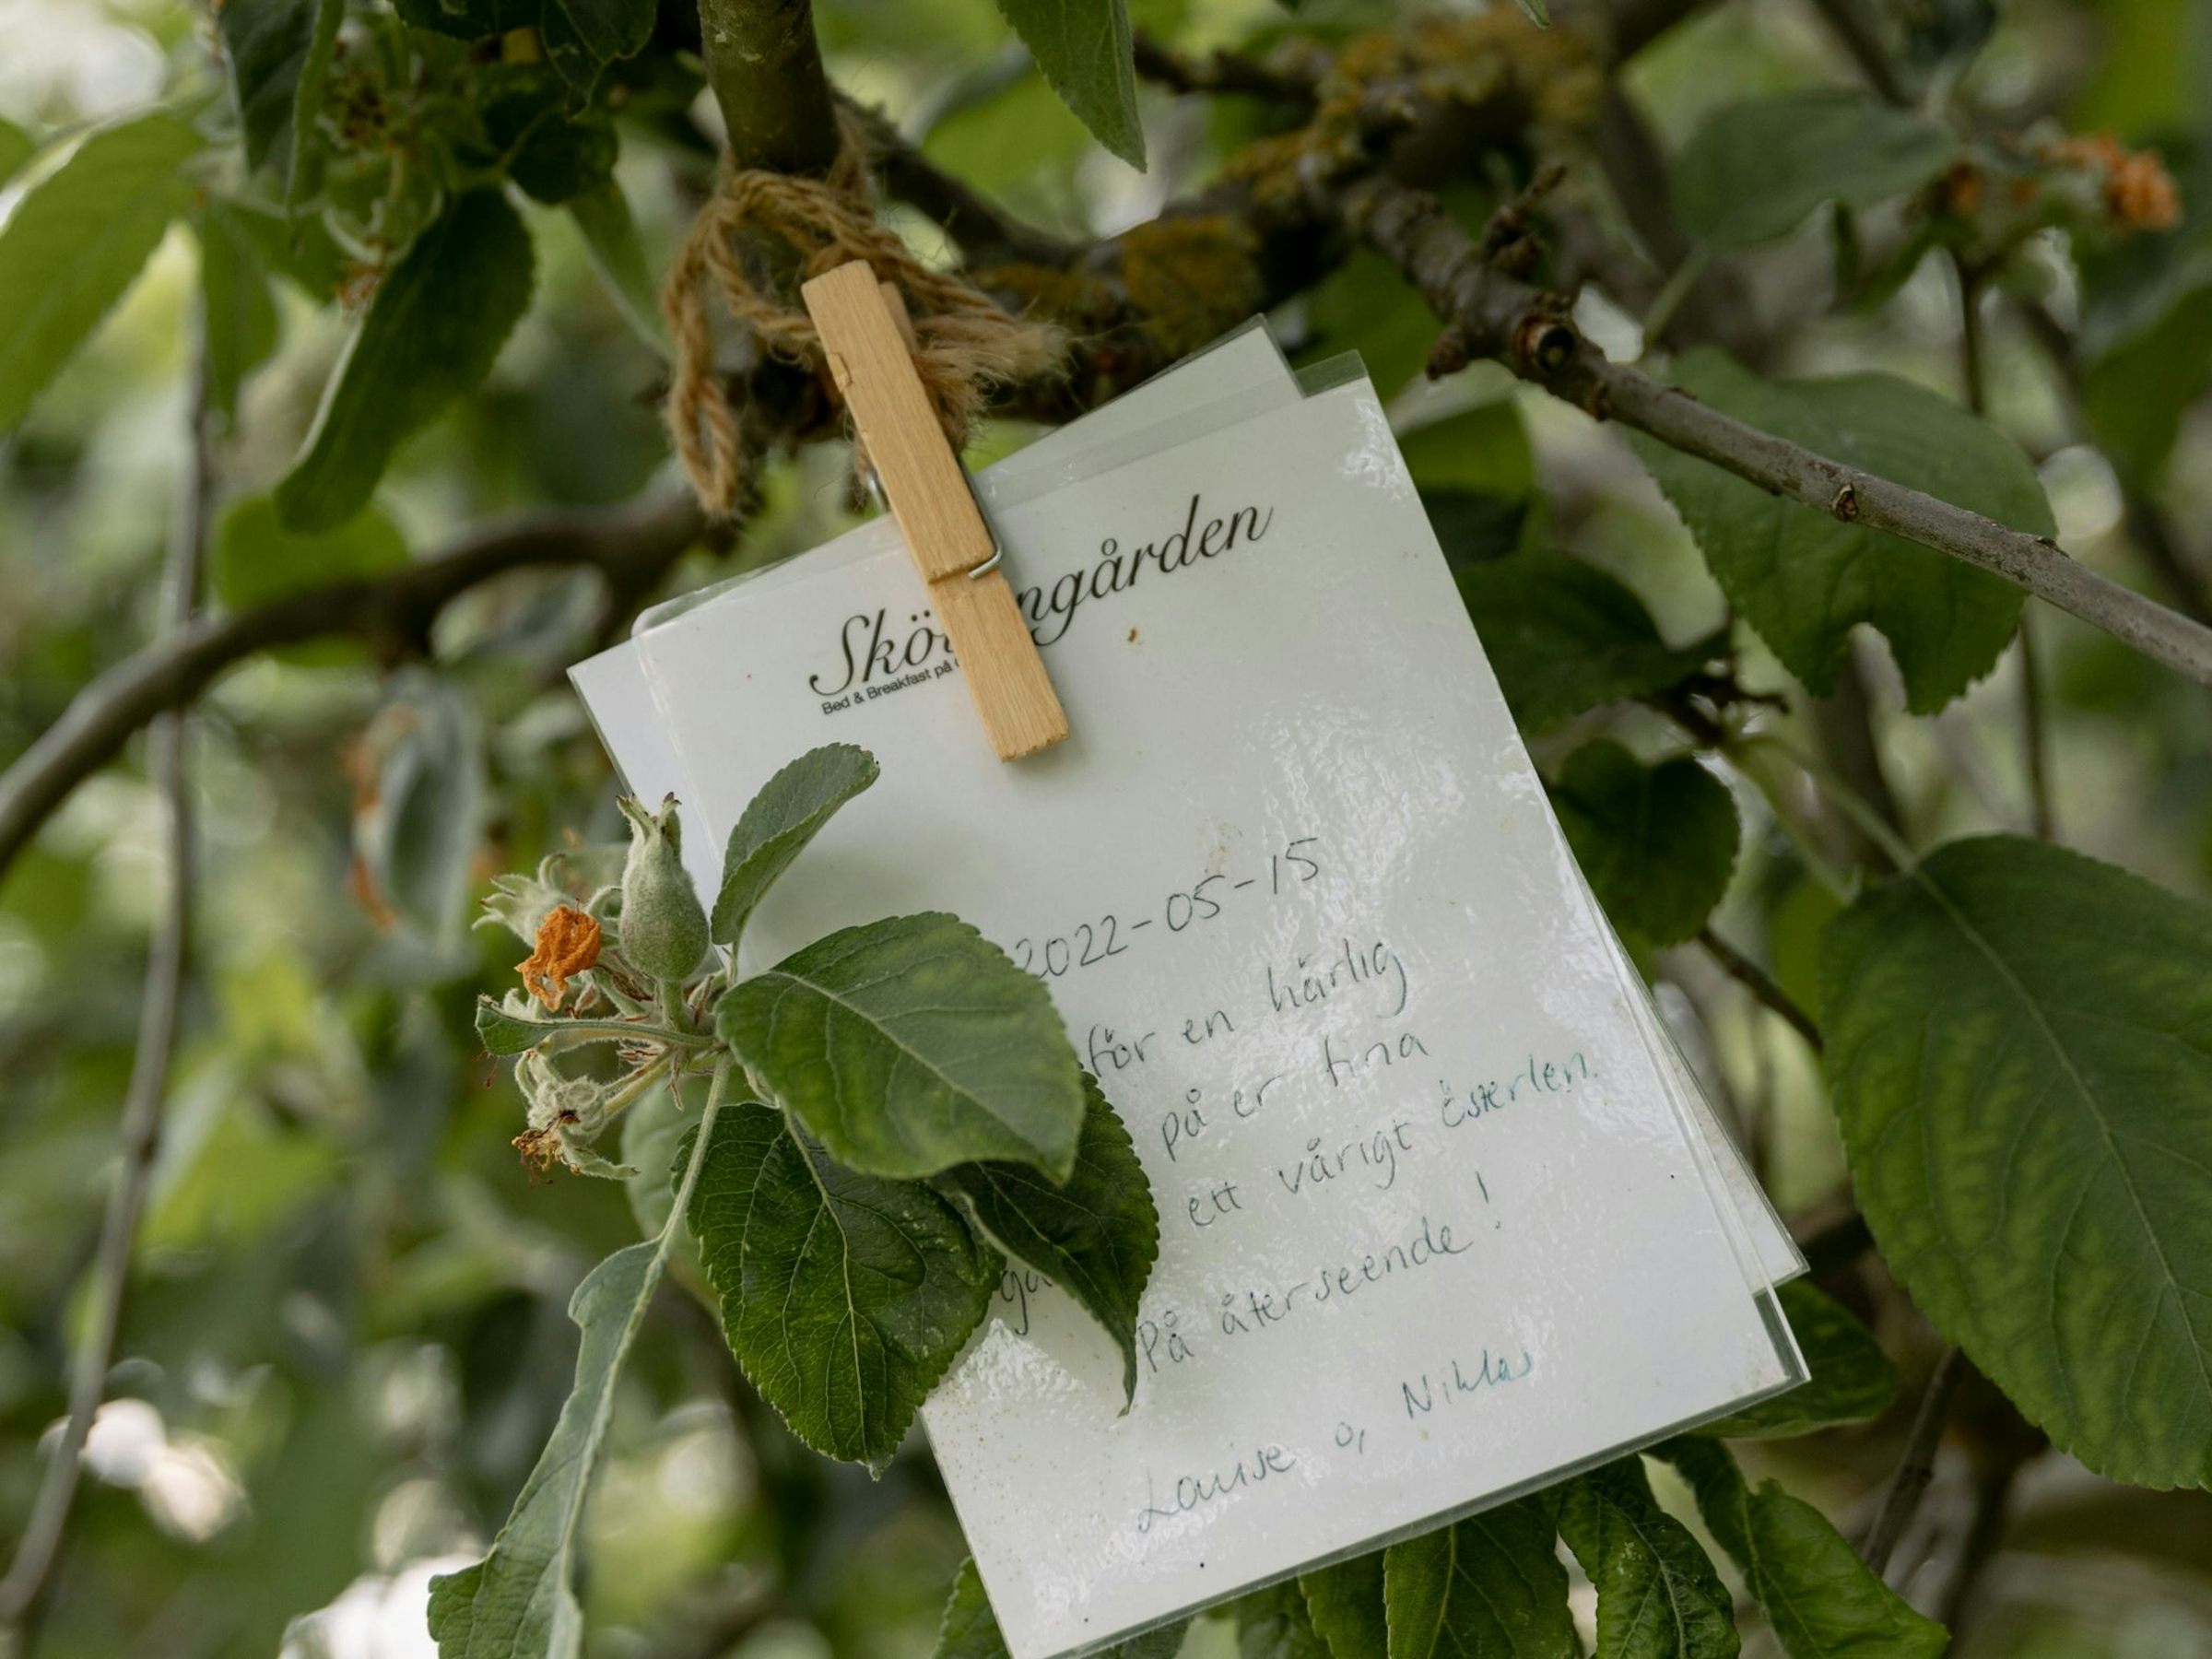 Skö ngården
Bed & Breakfast på
2022-05-15
för en härlig
på er fina
ett vårigt Österlen.
På återseende!
Louise o, Niklas